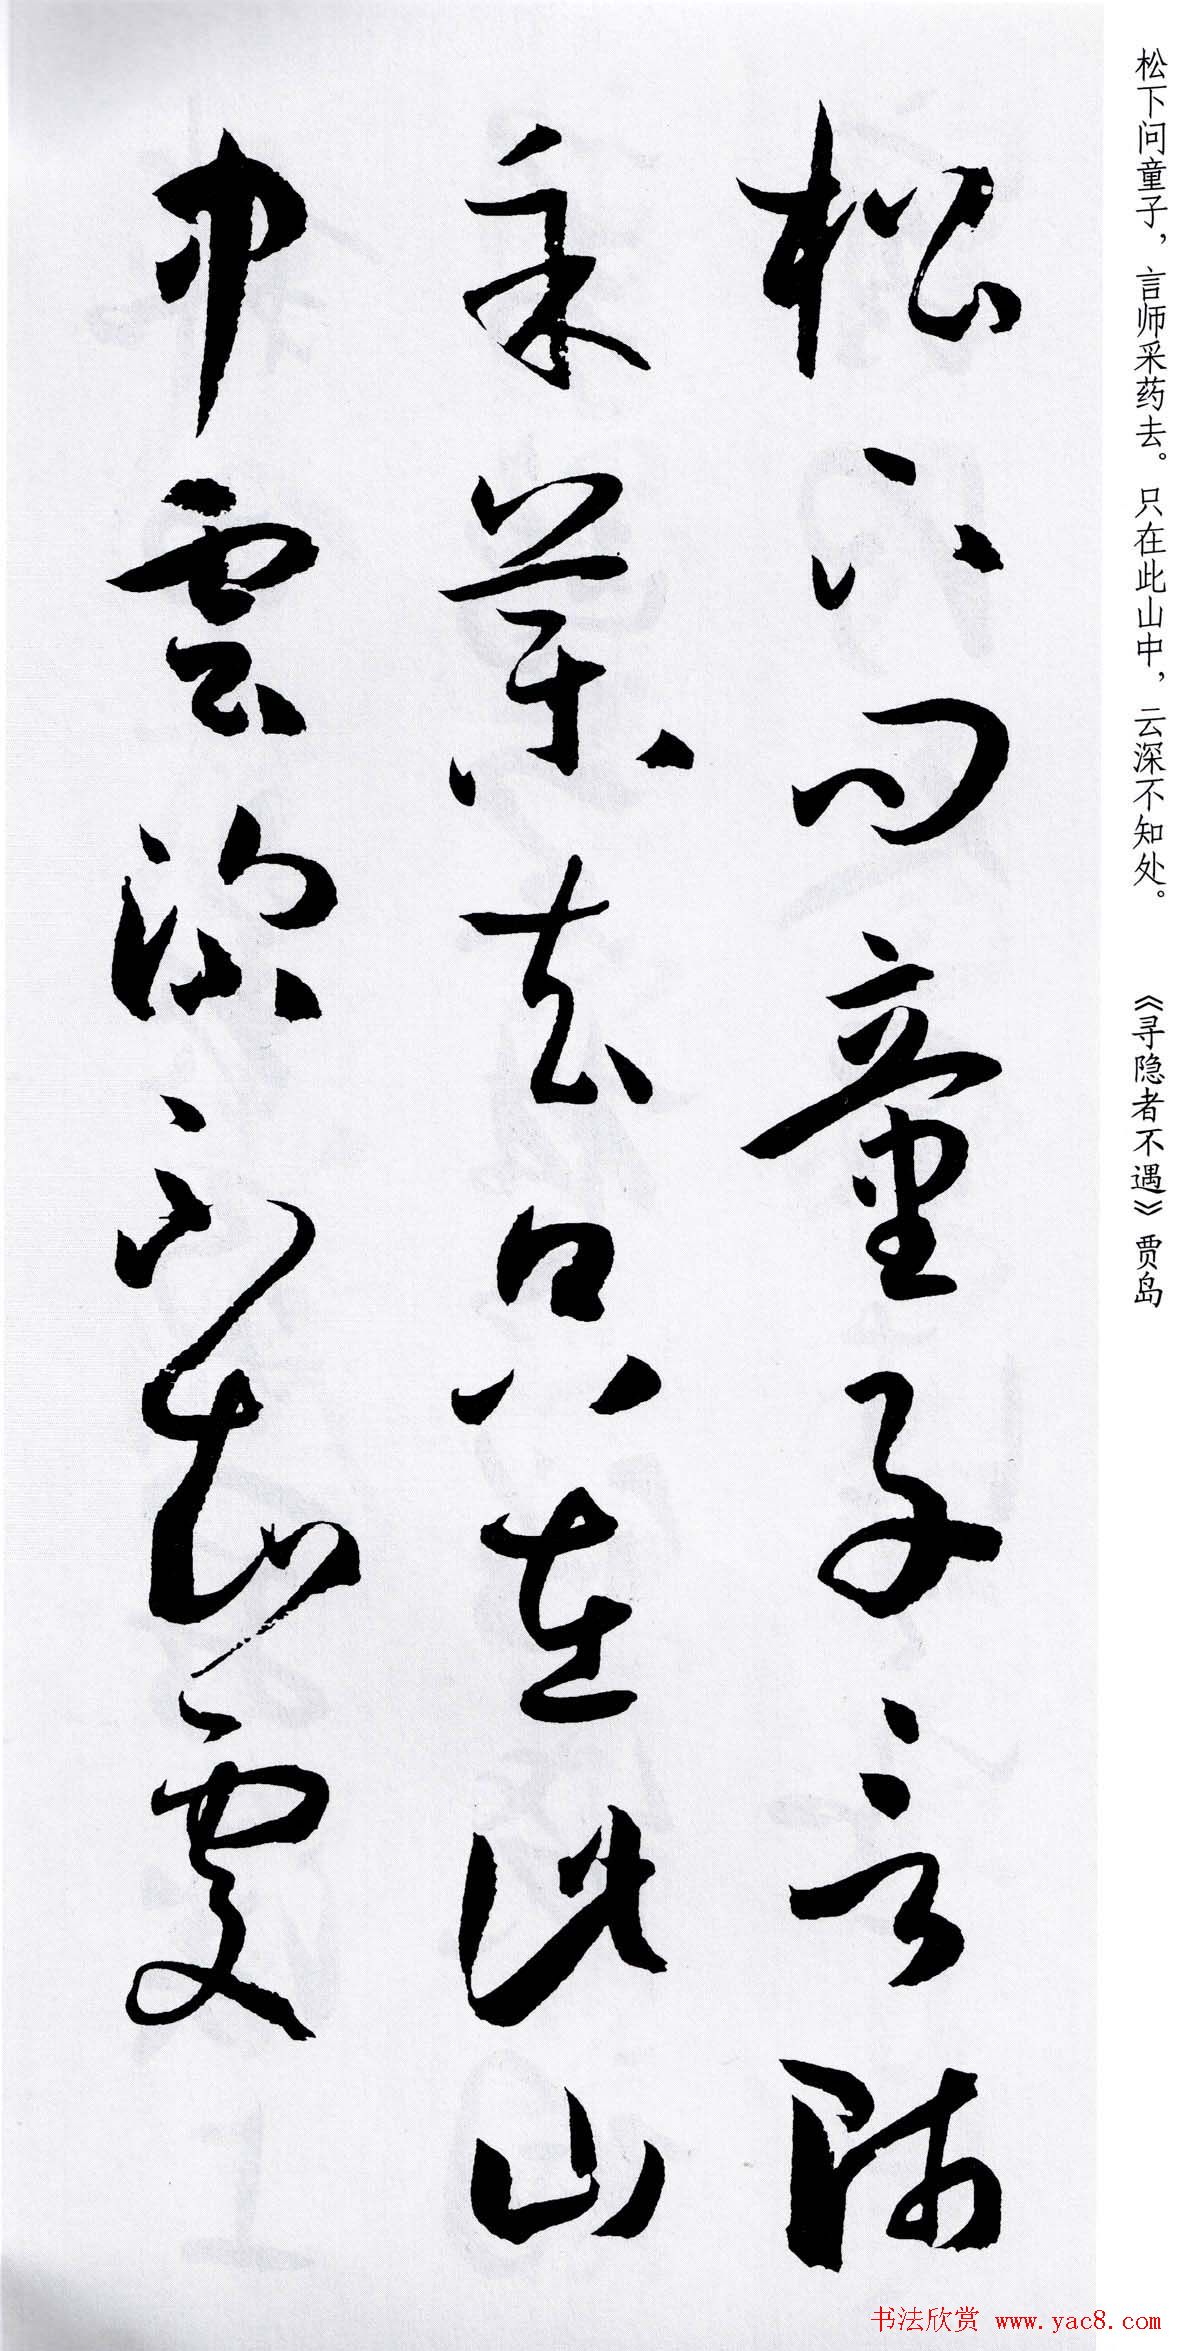 松下问童子，言师采药去。只在此山中，云深不知处。 《寻隐者不遇》贾岛
松下问童子言师
采药去只在此山
中雲深不知處
书法欣赏 www.yac8.com